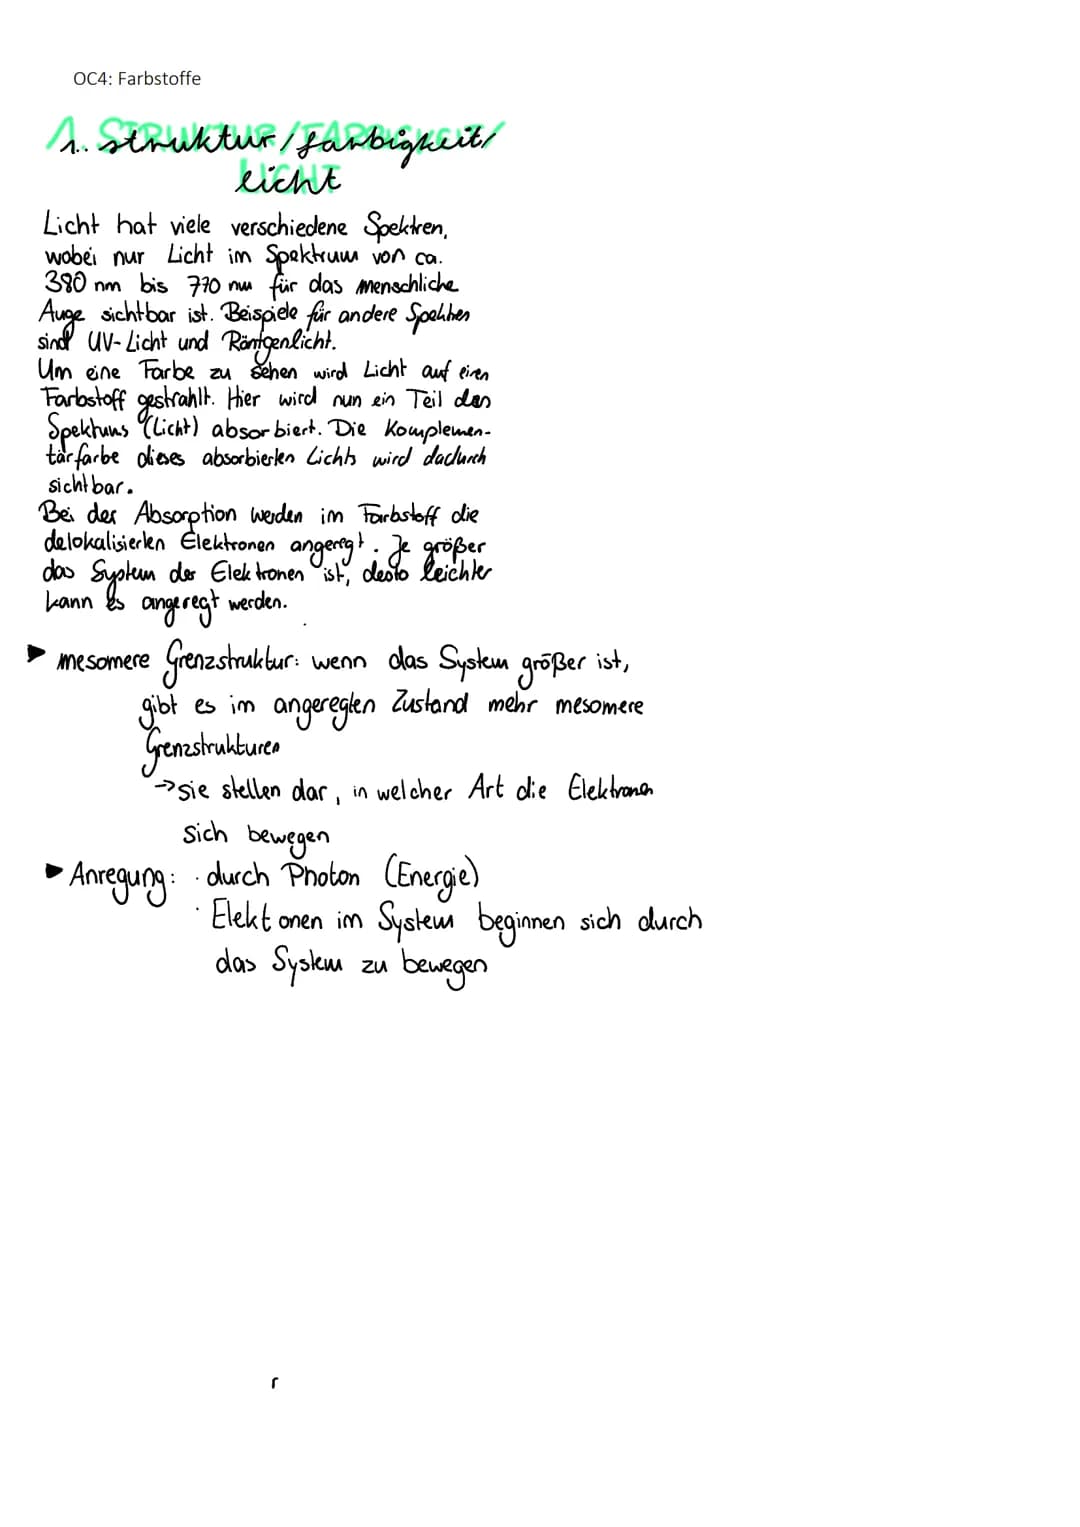 OC4: Farbstoffe
1. Struktur/Farbigkeit/
Licht
Licht hat viele verschiedene Spektren,
wobei nur Licht im Spektrum von ca.
380 nm bis 770 nm für das menschliche
Auge sichtbar ist. Beispiele für andere Spektren
sind UV-Licht und Röntgenlicht.
Um eine Farbe zu sehen wird Licht auf einen
Farbstoff gestrahlt. Hier wird nun ein Teil des
Spektrums (Licht) absorbiert. Die Komplemen-
tärfarbe dieses absorbierten Lichts wird dadurch
sichtbar.
Bei der Absorption werden im Farbstoff die
delokalisierten Elektronen angeregt. Je größer
das System der Elektronen ist, desto leichter
kann es angeregt werden.
▶ mesomere Grenzstruktur: wenn das System größer ist,
gibt es im angeregten Zustand mehr mesomere
Grenzstrukturen
→ sie stellen dar, in welcher Art die Elektronen
sich bewegen
▶ Anregung: · durch Photon (Energie)
· Elekt onen im System beginnen sich durch
das System zu bewegen
r